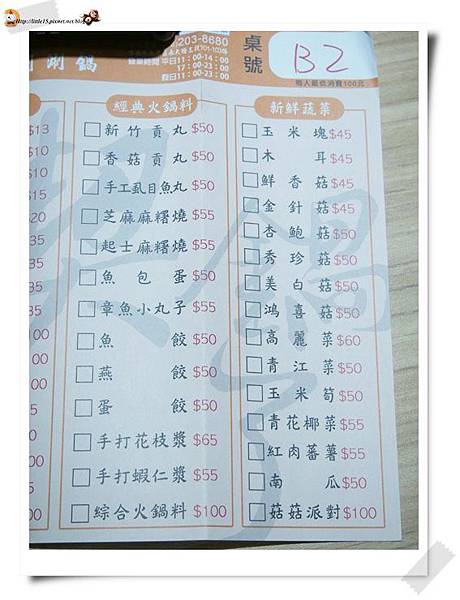 http://little15.pixnet.net/blog
203-8680
涮鍋
平日11:00-14:00
17:00-23:00
假日11:00-23:00
桌號
B2
每人最低消費100元
$13
$10
$10
$15
經典火鍋料
新竹貢丸 $50
香菇貢丸 $50
手工虱目魚丸 $50
芝麻麻糬燒 $55
起士麻糬燒 $55
魚包蛋 $50
章魚小丸子 $55
魚餃 $50
燕餃 $50
蛋餃 $50
手打花枝漿 $65
手打蝦仁漿 $55
綜合火鍋料 $100
新鮮蔬菜
玉米塊 $45
木耳 $45
鮮香菇 $45
金針菇 $45
杏鮑菇 $50
秀珍菇 $50
美白菇 $50
鴻喜菇 $50
高麗菜 $60
青江菜 $50
玉米筍 $50
青花椰菜 $55
紅肉蕃薯 $55
南瓜 $50
菇菇派對 $100